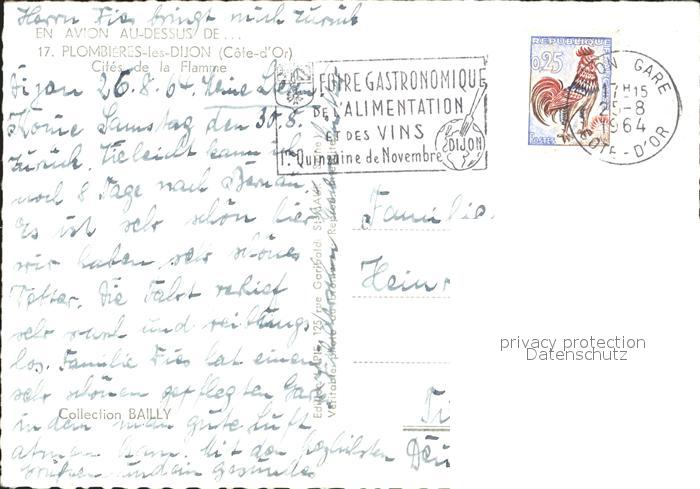 Herrn Fies bringt mich zurück
EN AVION AU-DESSUS DE...
17. PLOMBIERES-les-DIJON (Côte-d'Or)
Cités de la Flamme
Dijon 26.8.64. Meine
Komme Samstag den 30.8.
zurück. Vieleicht kann ich
noch 8 Tage nach
Es ist sehr schön hier
wir haben sehr schönes
Wetter. Die Fahrt verlief
sehr rasch und reibungs
los. Familie Fies hat einen
sehr schönen gepflegten Gar
Collection BAILLY
in dem man gute Luft
atmen kann. Mit den herzlichsten
Grüßen und ein gesundes
Editions LAPIE, 125, rue Garibaldi, St-MAUR
Véritable
FOIRE GASTRONOMIQUE
DE L'ALIMENTATION
ET DES VINS
1re Quinzaine de Novembre
DIJON
REPUBLIQUE
0,25
Postes
DIJON GARE
17H15
25-8
1964
COTE-D'OR
Familie
Hein
privacy protection
Datenschutz